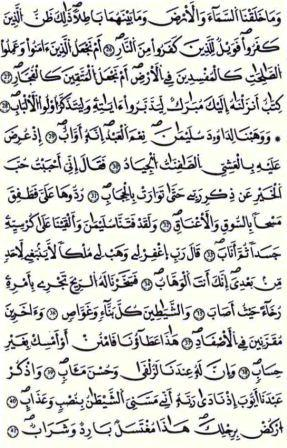 وَمَا خَلَقْنَا السَّمَآءَ وَالْأَرْضَ وَمَا بَيْنَهُمَا بَاطِلًا ذَٰلِكَ ظَنُّ الَّذِينَ
كَفَرُوا فَوَيْلٌ لِّلَّذِينَ كَفَرُوا مِنَ النَّارِ ٢٦ أَمْ نَجْعَلُ الَّذِينَ ءَامَنُوا وَعَمِلُوا
الصَّٰلِحَٰتِ كَالْمُفْسِدِينَ فِي الْأَرْضِ أَمْ نَجْعَلُ الْمُتَّقِينَ كَالْفُجَّارِ ٢٧
كِتَٰبٌ أَنزَلْنَٰهُ إِلَيْكَ مُبَٰرَكٌ لِّيَدَّبَّرُوا ءَايَٰتِهِ وَلِيَتَذَكَّرَ أُولُوا الْأَلْبَٰبِ ٢٨
۞ وَوَهَبْنَا لِدَاوُۥدَ سُلَيْمَٰنَ نِعْمَ الْعَبْدُ إِنَّهُ أَوَّابٌ ٢٩ إِذْ عُرِضَ
عَلَيْهِ بِالْعَشِيِّ الصَّٰفِنَٰتُ الْجِيَادُ ٣٠ فَقَالَ إِنِّي أَحْبَبْتُ حُبَّ
الْخَيْرِ عَن ذِكْرِ رَبِّي حَتَّىٰ تَوَارَتْ بِالْحِجَابِ ٣١ رُدُّوهَا عَلَيَّ فَطَفِقَ
مَسْحًا بِالسُّوقِ وَالْأَعْنَاقِ ٣٢ وَلَقَدْ فَتَنَّا سُلَيْمَٰنَ وَأَلْقَيْنَا عَلَىٰ كُرْسِيِّهِ
جَسَدًا ثُمَّ أَنَابَ ٣٣ قَالَ رَبِّ اغْفِرْ لِي وَهَبْ لِي مُلْكًا لَّا يَنۢبَغِي لِأَحَدٍ
مِّنۢ بَعْدِي إِنَّكَ أَنتَ الْوَهَّابُ ٣٤ فَسَخَّرْنَا لَهُ الرِّيحَ تَجْرِي بِأَمْرِهِ
رُخَآءً حَيْثُ أَصَابَ ٣٥ وَالشَّيَٰطِينَ كُلَّ بَنَّآءٍ وَغَوَّاصٍ ٣٦ وَءَاخَرِينَ
مُقَرَّنِينَ فِي الْأَصْفَادِ ٣٧ هَٰذَا عَطَآؤُنَا فَامْنُنْ أَوْ أَمْسِكْ بِغَيْرِ
حِسَابٍ ٣٨ وَإِنَّ لَهُ عِندَنَا لَزُلْفَىٰ وَحُسْنَ مَـَٔابٍ ٣٩ وَاذْكُرْ
عَبْدَنَآ أَيُّوبَ إِذْ نَادَىٰ رَبَّهُ أَنِّي مَسَّنِيَ الشَّيْطَٰنُ بِنُصْبٍ وَعَذَابٍ ٤٠
ارْكُضْ بِرِجْلِكَ هَٰذَا مُغْتَسَلٌۢ بَارِدٌ وَشَرَابٌ ٤١